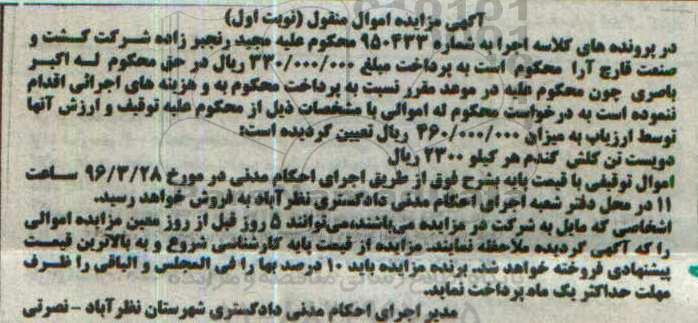 آگهی مزایده اموال منقول (نوبت اول)
در پرونده های کلاسه اجرا به شماره ۹۵۰۴۳۳ محکوم علیه مجید رنجبر زاده شرکت کشت و
صنعت قارچ آرا محکوم است به پرداخت مبلغ ۳۳۰/۰۰۰/۰۰۰ ریال در حق محکوم له اکبر
یاصری چون محکوم علیه در موعد مقرر نسبت به پرداخت محکوم به و هزینه های اجرائی اقدام
ننموده است به درخواست محکوم له اموالی با مشخصات ذیل از محکوم علیه توقیف و ارزش آنها
توسط ارزیاب به میزان ۴۶۰/۰۰۰/۰۰۰ ریال تعیین گردیده است:
دویست تن کلش گندم هر کیلو ۲۳۰۰ ریال
اموال توقیفی با قیمت پایه بشرح فوق از طریق اجرای احکام مدنی در مورخ ۹۶/۳/۲۸ ساعت
۱۱ در محل دفتر شعبه اجرای احکام مدنی دادگستری نظرآباد به فروش خواهد رسید.
اشخاصی که مایل به شرکت در مزایده می‌باشند،می‌توانند ۵ روز قبل از روز معین مزایده اموالی
را که آگهی گردیده ملاحظه نمایند. مزایده از قیمت پایه کارشناسی شروع و به بالاترین قیمت
پیشنهادی فروخته خواهد شد. برنده مزایده باید ۱۰ درصد بها را فی المجلس و الباقی را ظرف
مهلت حداکثر یک ماه پرداخت نماید.
مدیر اجرای احکام مدنی دادگستری شهرستان نظرآباد - نصرتی